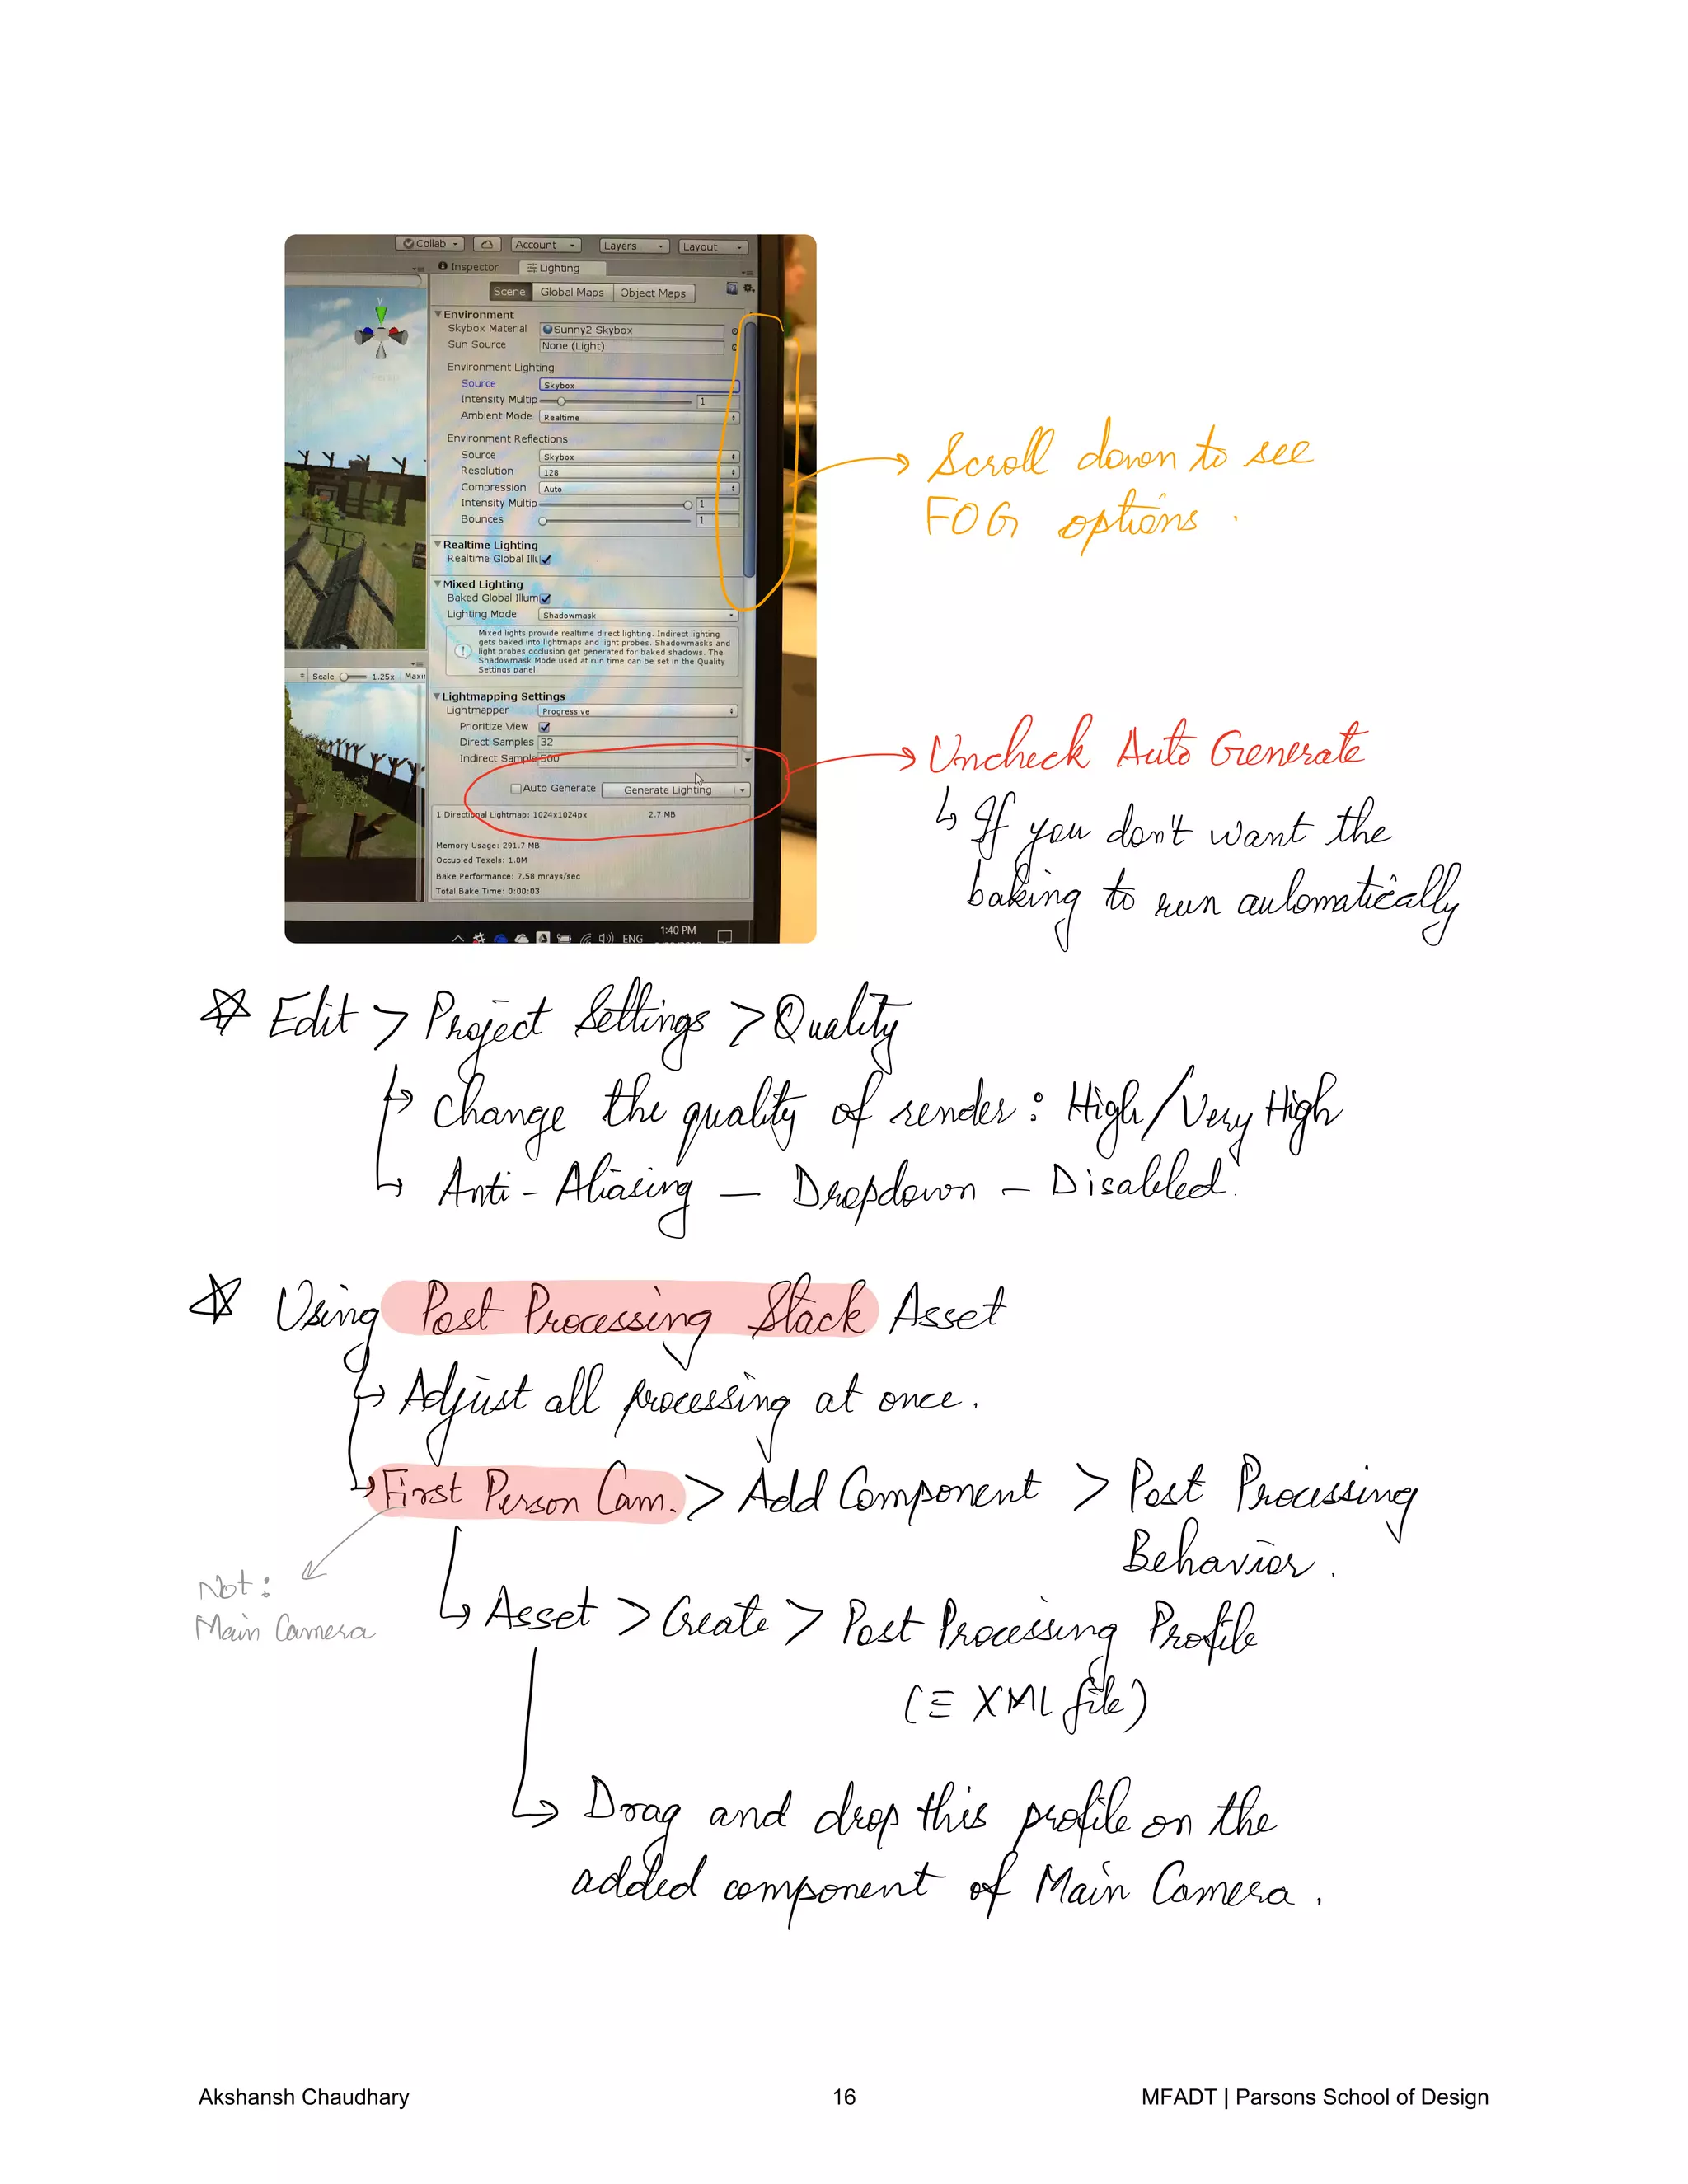 Collab
Account
Layers
Layout
Inspector
Lighting
Scene
Global Maps
Object Maps
Environment
Skybox Material Sunny2 Skybox
Sun Source None (Light)
Environment Lighting
Source Skybox
Intensity Multip 1
Ambient Mode Realtime
Environment Reflections
Source Skybox
Resolution 128
Compression Auto
Intensity Multip 1
Bounces 1
Realtime Lighting
Realtime Global Illu
Mixed Lighting
Baked Global Illum
Lighting Mode Shadowmask
Mixed lights provide realtime direct lighting. Indirect lighting
gets baked into lightmaps and light probes. Shadowmasks and
light probes occlusion get generated for baked shadows. The
Shadowmask Mode used at run time can be set in the Quality
Settings panel.
Scale 1.25x Maxi
Lightmapping Settings
Lightmapper Progressive
Prioritize View
Direct Samples 32
Indirect Sample 500
Auto Generate Generate Lighting
1 Directional Lightmap: 1024x1024px 2.7 MB
Memory Usage: 291.7 MB
Occupied Texels: 1.0M
Bake Performance: 7.58 mrays/sec
Total Bake Time: 0:00:03
ENG 1:40 PM
Scroll down to see
FOG options.
Uncheck Auto Generate
If you don't want the
baking to run automatically
Edit > Project Settings > Quality
Change the quality of render: High/Very High
Anti-Aliasing – Dropdown – Disabled.
Using Post Processing Stack Asset
Adjust all processing at once.
First Person Cam. > Add Component > Post Processing
Behavior.
Not:
Main Camera
Asset > Create > Post Processing Profile
(≡ XML file)
Drag and drop this profile on the
added component of Main Camera.
Akshansh Chaudhary 16 MFADT | Parsons School of Design